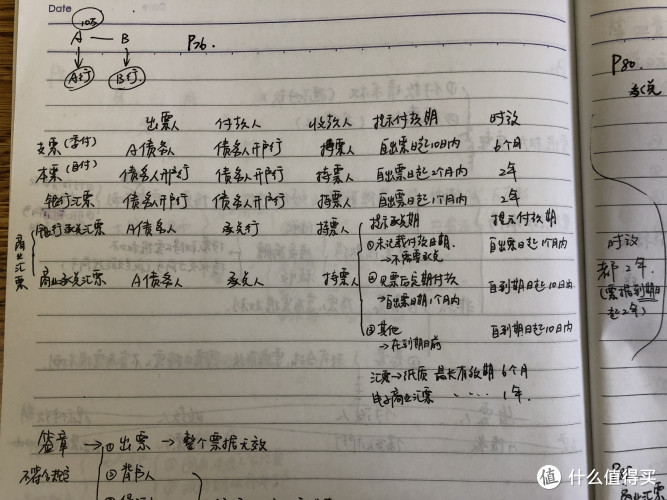 Date
10万
A — B
P76.
A行
B行
P80.
承兑
出票人 付款人 收款人 提示付款期 时效
支票(委付) A债务人 债务人开户行 持票人 自出票日起10日内 6个月
本票(自付) 债务人开户行 债务人开户行 持票人 自出票日起2个月内 2年
银行汇票 债务人开户行 债务人开户行 持票人 自出票日起1个月内 2年
商业汇票
银行承兑汇票 A债务人 承兑行 持票人
商业承兑汇票 A债务人 承兑人 持票人
提示承兑期 提示付款期
①未记载付款日期. 自出票日起1个月内
→不需要承兑
②见票后定期付款 自到期日起10日内
→自出票日起1个月内
③其他 自到期日起10日内
→在到期日前
汇票→纸质 最长有效期 6个月
电子商业汇票 ····· 1年.
时效
都2年.
(票据到期日
起2年)
签章 → ①出票 → 整个票据无效
②背书人
商业汇票
值 什么值得买